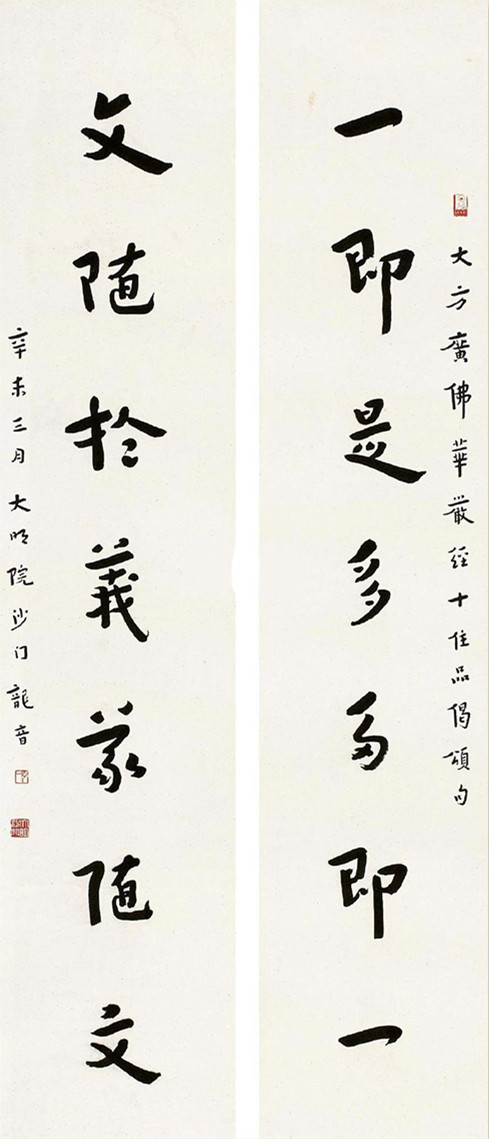 大方廣佛華嚴經十住品偈頌句
一即是多多即一
文随於義義随文
辛未三月大明院沙门龍音